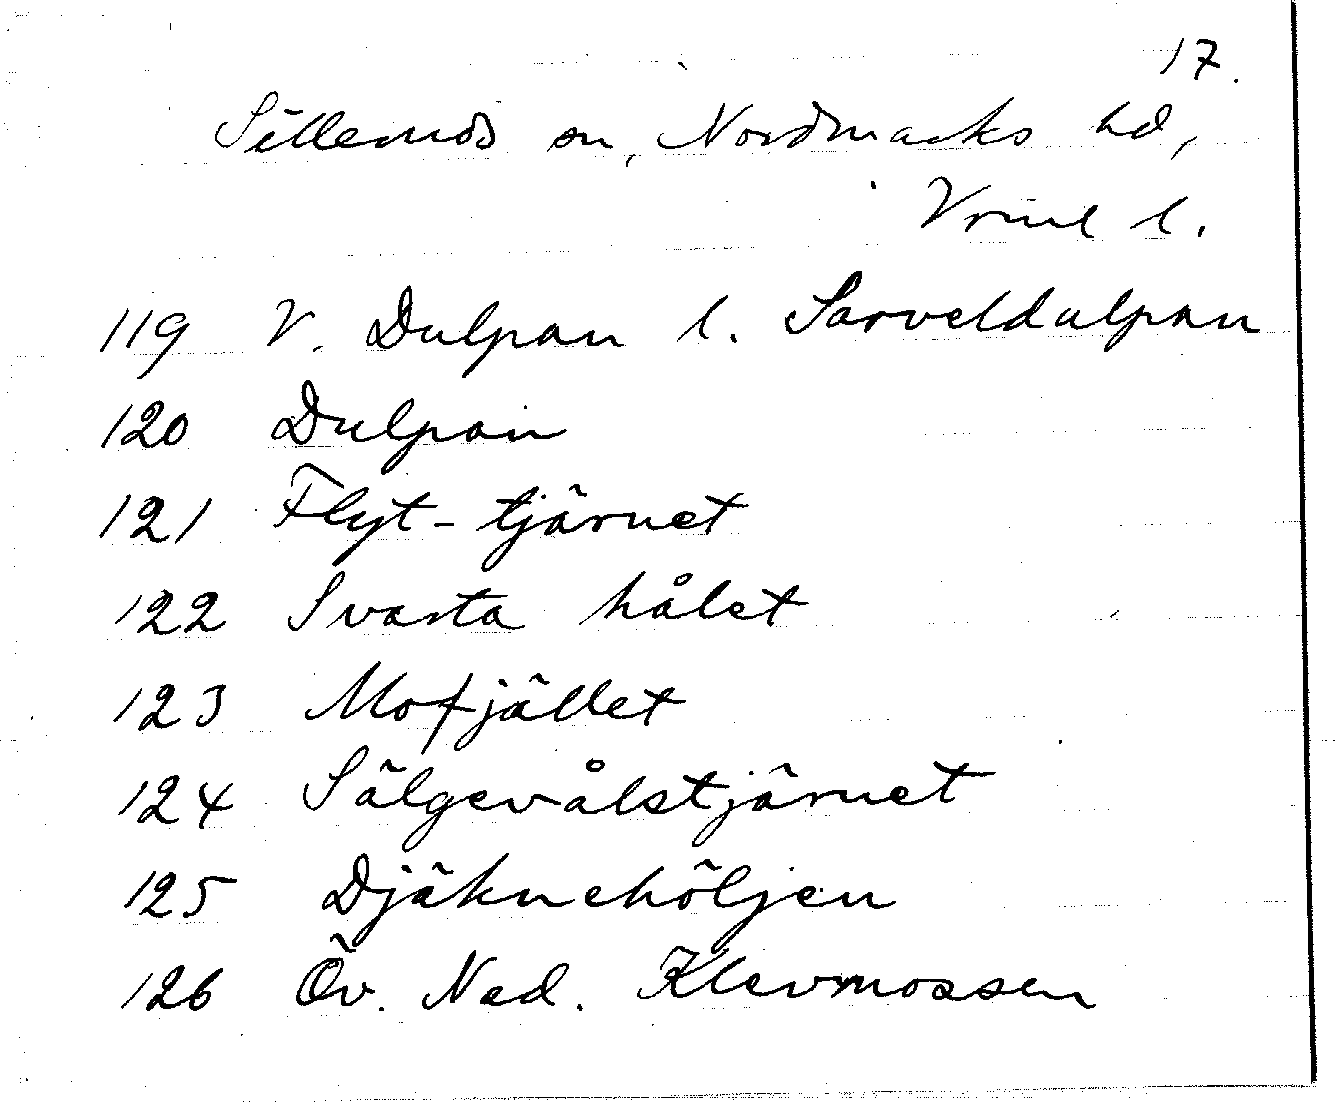 17.
Sillerud sn, Nordmarks hd,
Vrml l.
119 V. Dulpan l. Sarveldulpan
120 Dulpan
121 Flyt-tjärnet
122 Svarta hålet
123 Mofjället
124 Sälgevålstjärnet
125 Djäknehöljen
126 Öv. Ned. Klevmossen